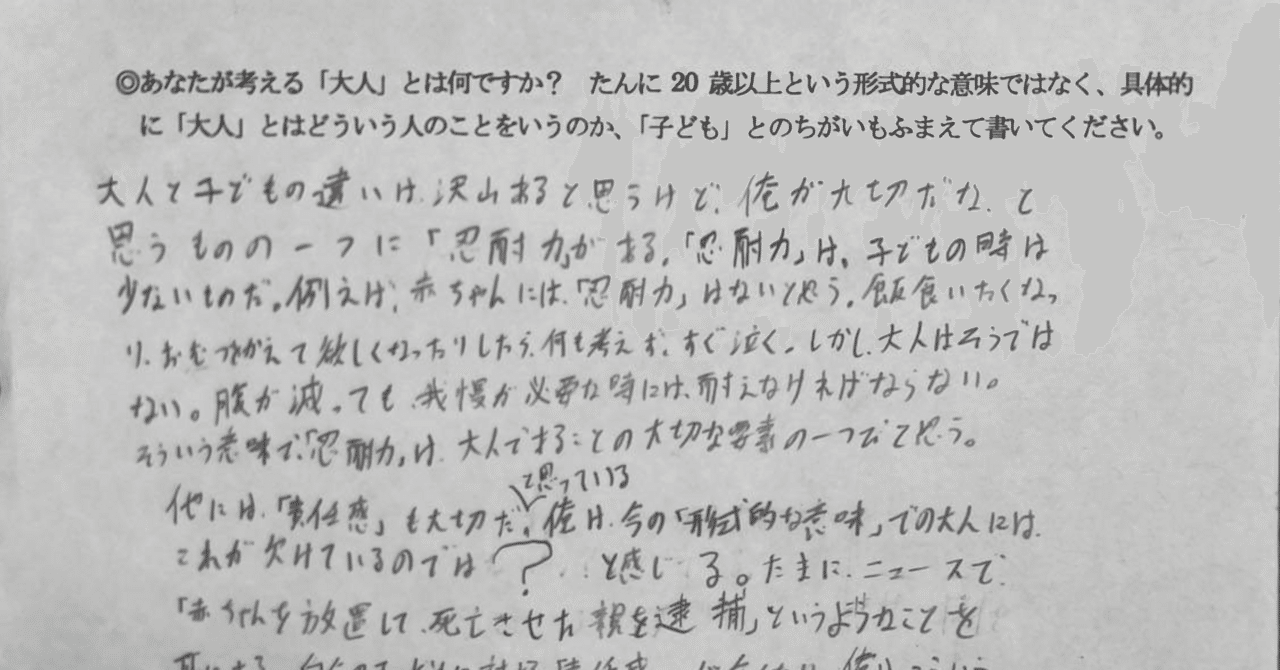 ◎あなたが考える「大人」とは何ですか？　たんに 20 歳以上という形式的な意味ではなく、具体的
に「大人」とはどういう人のことをいうのか、「子ども」とのちがいもふまえて書いてください。
大人と子どもの違いは、沢山あると思うけど、俺が大切だな、と
思うものの一つに「忍耐力」がある。「忍耐力」は、子どもの時は
少ないものだ。例えば、赤ちゃんには、「忍耐力」はないと思う。飯食いたくなっ
り、おむつかえて欲しくなったりしたら、何も考えず、すぐ泣く。しかし、大人はそうでは
ない。腹が減っても、我慢が必要な時には、耐えなければならない。
そういう意味で、「忍耐力」は、大人であることの大切な要素の一つだと思う。
と思っている
他には、「責任感」も大切だ。俺は、今の「形式的な意味」での大人には、
これが欠けているのでは？…と感じる。たまに、ニュースで、
「赤ちゃんを放置して、死亡させた親を逮捕」というようなことを
耳にする。